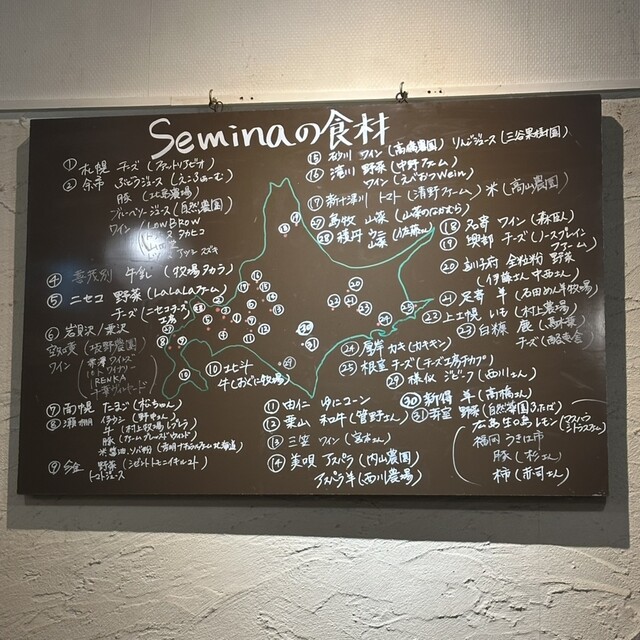 Seminaの食材
① 札幌 チーズ (ファットリアビオ)
② 余市 ぶどうジュース (えこふぁーむ)
豚 (北島農場)
ブルーベリージュース (自然農園)
ワイン (LowBrow
タカヒコ
④ 喜茂別 牛乳 (牧場タカラ)
⑤ ニセコ 野菜 (LaLaLaファーム)
チーズ (ニセコチーズ工房)
⑥ 岩見沢/
(坂野農園)
ワイン
RENKA
⑦ 高幌 たまご (松ちゃん)
⑧ 瀬棚
牛 (村上牧場レプレラ)
豚 (ファームブレッスドウィンド)
米 醤油 ソバ粉
⑨ 今金 野菜
トマトジュース
⑩ 北斗
牛 (おぐに牧場)
⑪ 由仁 ゆにコーン
⑫ 葉山 和牛 (菅野さん)
⑬ 三笠 ワイン (宮本さん)
⑭ 美唄 アスパラ (内山農園)
アスパラ羊 (西川農場)
⑮ 砂川 ワイン (高橋農園) りんごジュース (三谷果樹園)
⑯ 滝川 野菜 (中野ファーム)
ワイン (えべおつWein)
⑰ 新十津川 トマト (清野ファーム) 米 (高山農園)
㉗ 島牧 山菜 (山菜のなかむら)
㉘ 積丹 ウニ
山菜 (佐藤さん)
⑱ 名寄 ワイン (森臥)
⑲ 興部 チーズ (ノースプレインファーム)
⑳ 訓子府 全粒粉 野菜
(伊藤さん 中西さん)
㉑ 足寄 羊 (石田めん羊牧場)
㉒ 上士幌 いも (村上農場)
㉓ 白糠 鹿
チーズ (酪恵舎)
㉔ 厚岸 カキ (カキキン)
㉕ 根室 チーズ (チーズ工房チカプ)
㉙ 様似 ジビーフ (西川さん)
㉚ 新得 羊 (高橋さん)
㉛ 新冠 野菜 (自然農園ふたば)
広島 生口島 レモン
福岡 うきは市
豚 (杉さん)
柿 (赤司さん)